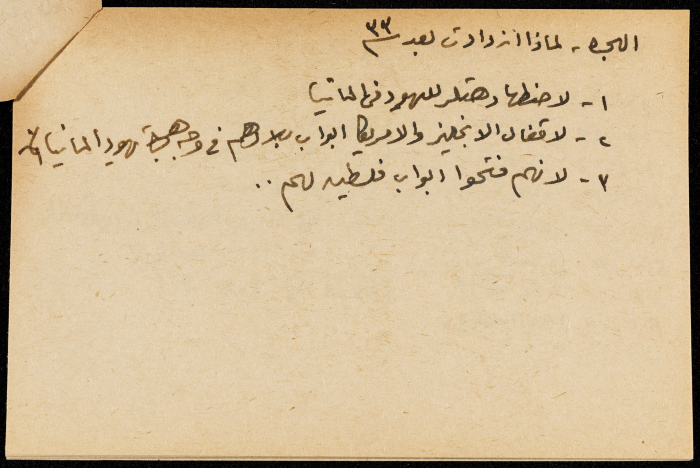 الهجرة - لماذا ازدادت بعد ٣٣
١- لاضطهاد هتلر لليهود في المانيا
٢- لاقفال الانجليز والامريكا ابواب بلادهم في وجه هجرة يهود المانيا
٣- لانهم فتحوا ابواب فلسطين لهم ..